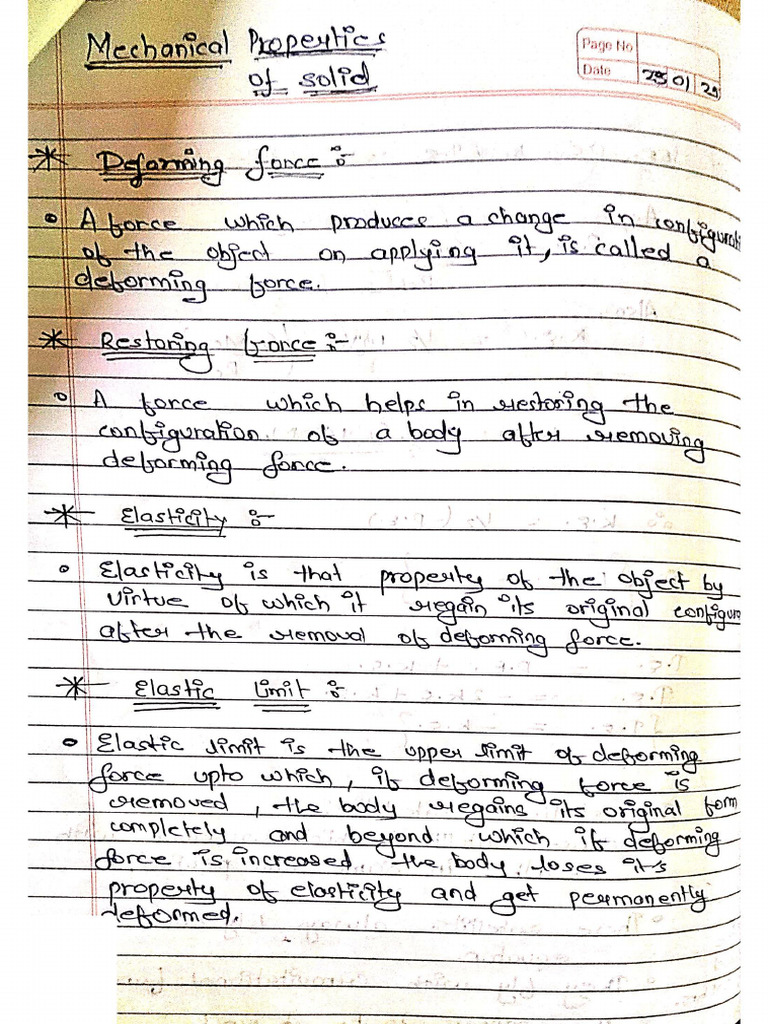 Mechanical Properties
of solid
Page No
Date 25 01 25
* Deforming force :-
• A force which produces a change in configurati
of the object on applying it, is called a
deforming force.
* Restoring force :-
• A force which helps in restoring the
configuration of a body after removing
deforming force.
* Elasticity :-
• Elasticity is that property of the object by
virtue of which it regain its original configura
after the removal of deforming force.
* Elastic Limit :-
• Elastic limit is the upper limit of deforming
force upto which, if deforming force is
removed, the body regains its original form
completely and beyond which if deforming
force is increased the body loses its
property of elasticity and get permanently
deformed.